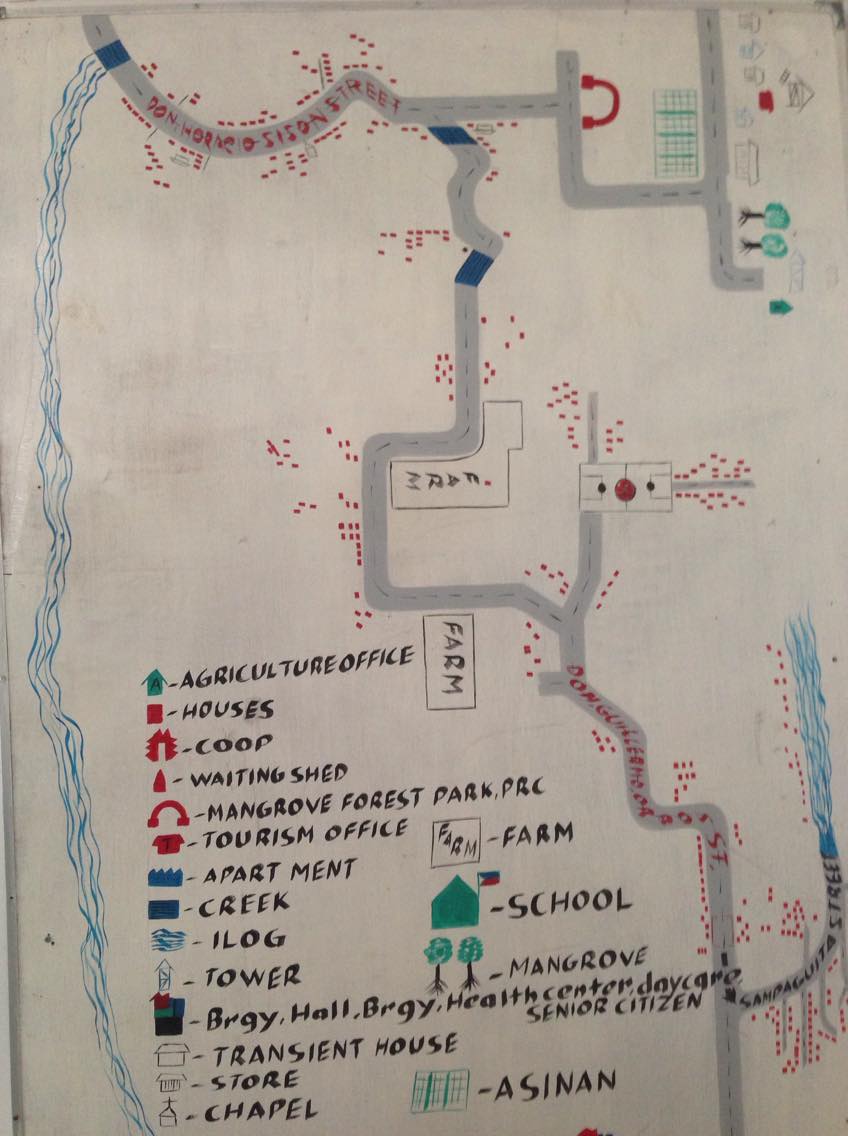 DON. HORACIO SISON STREET
FARM
FARM
DON. GUILLERMO. OR BOS ST.
SAMPAGUITA STREET
A-AGRICULTURE OFFICE
-HOUSES
-COOP
-WAITING SHED
-MANGROVE FOREST PARK, PRC
T-TOURISM OFFICE
-APART MENT
-CREEK
-ILOG
-TOWER
-Brgy, Hall, Brgy, Health center, daycare
SENIOR CITIZEN
-TRANSIENT HOUSE
-STORE
-CHAPEL
FARM -FARM
-SCHOOL
-MANGROVE
-ASINAN